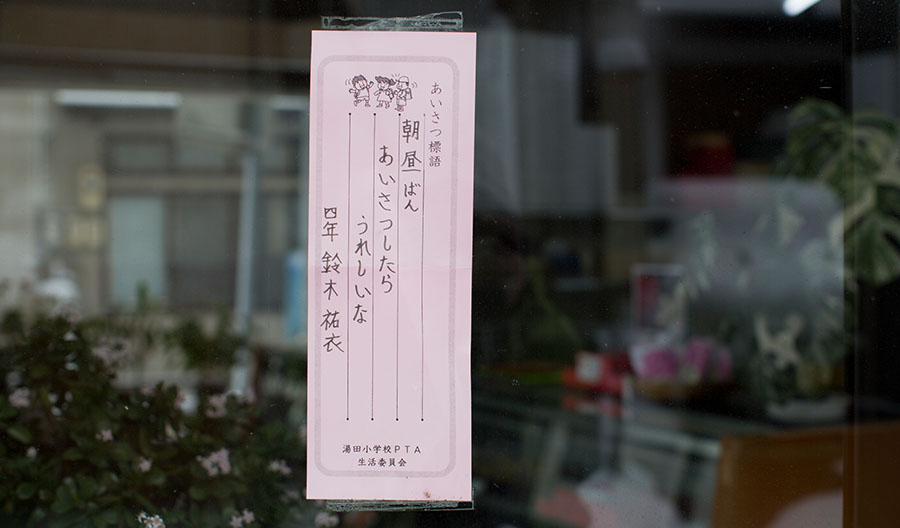 あいさつ標語
朝昼ばん
あいさつしたら
うれしいな
四年 鈴木祐衣
湯田小学校PTA
生活委員会